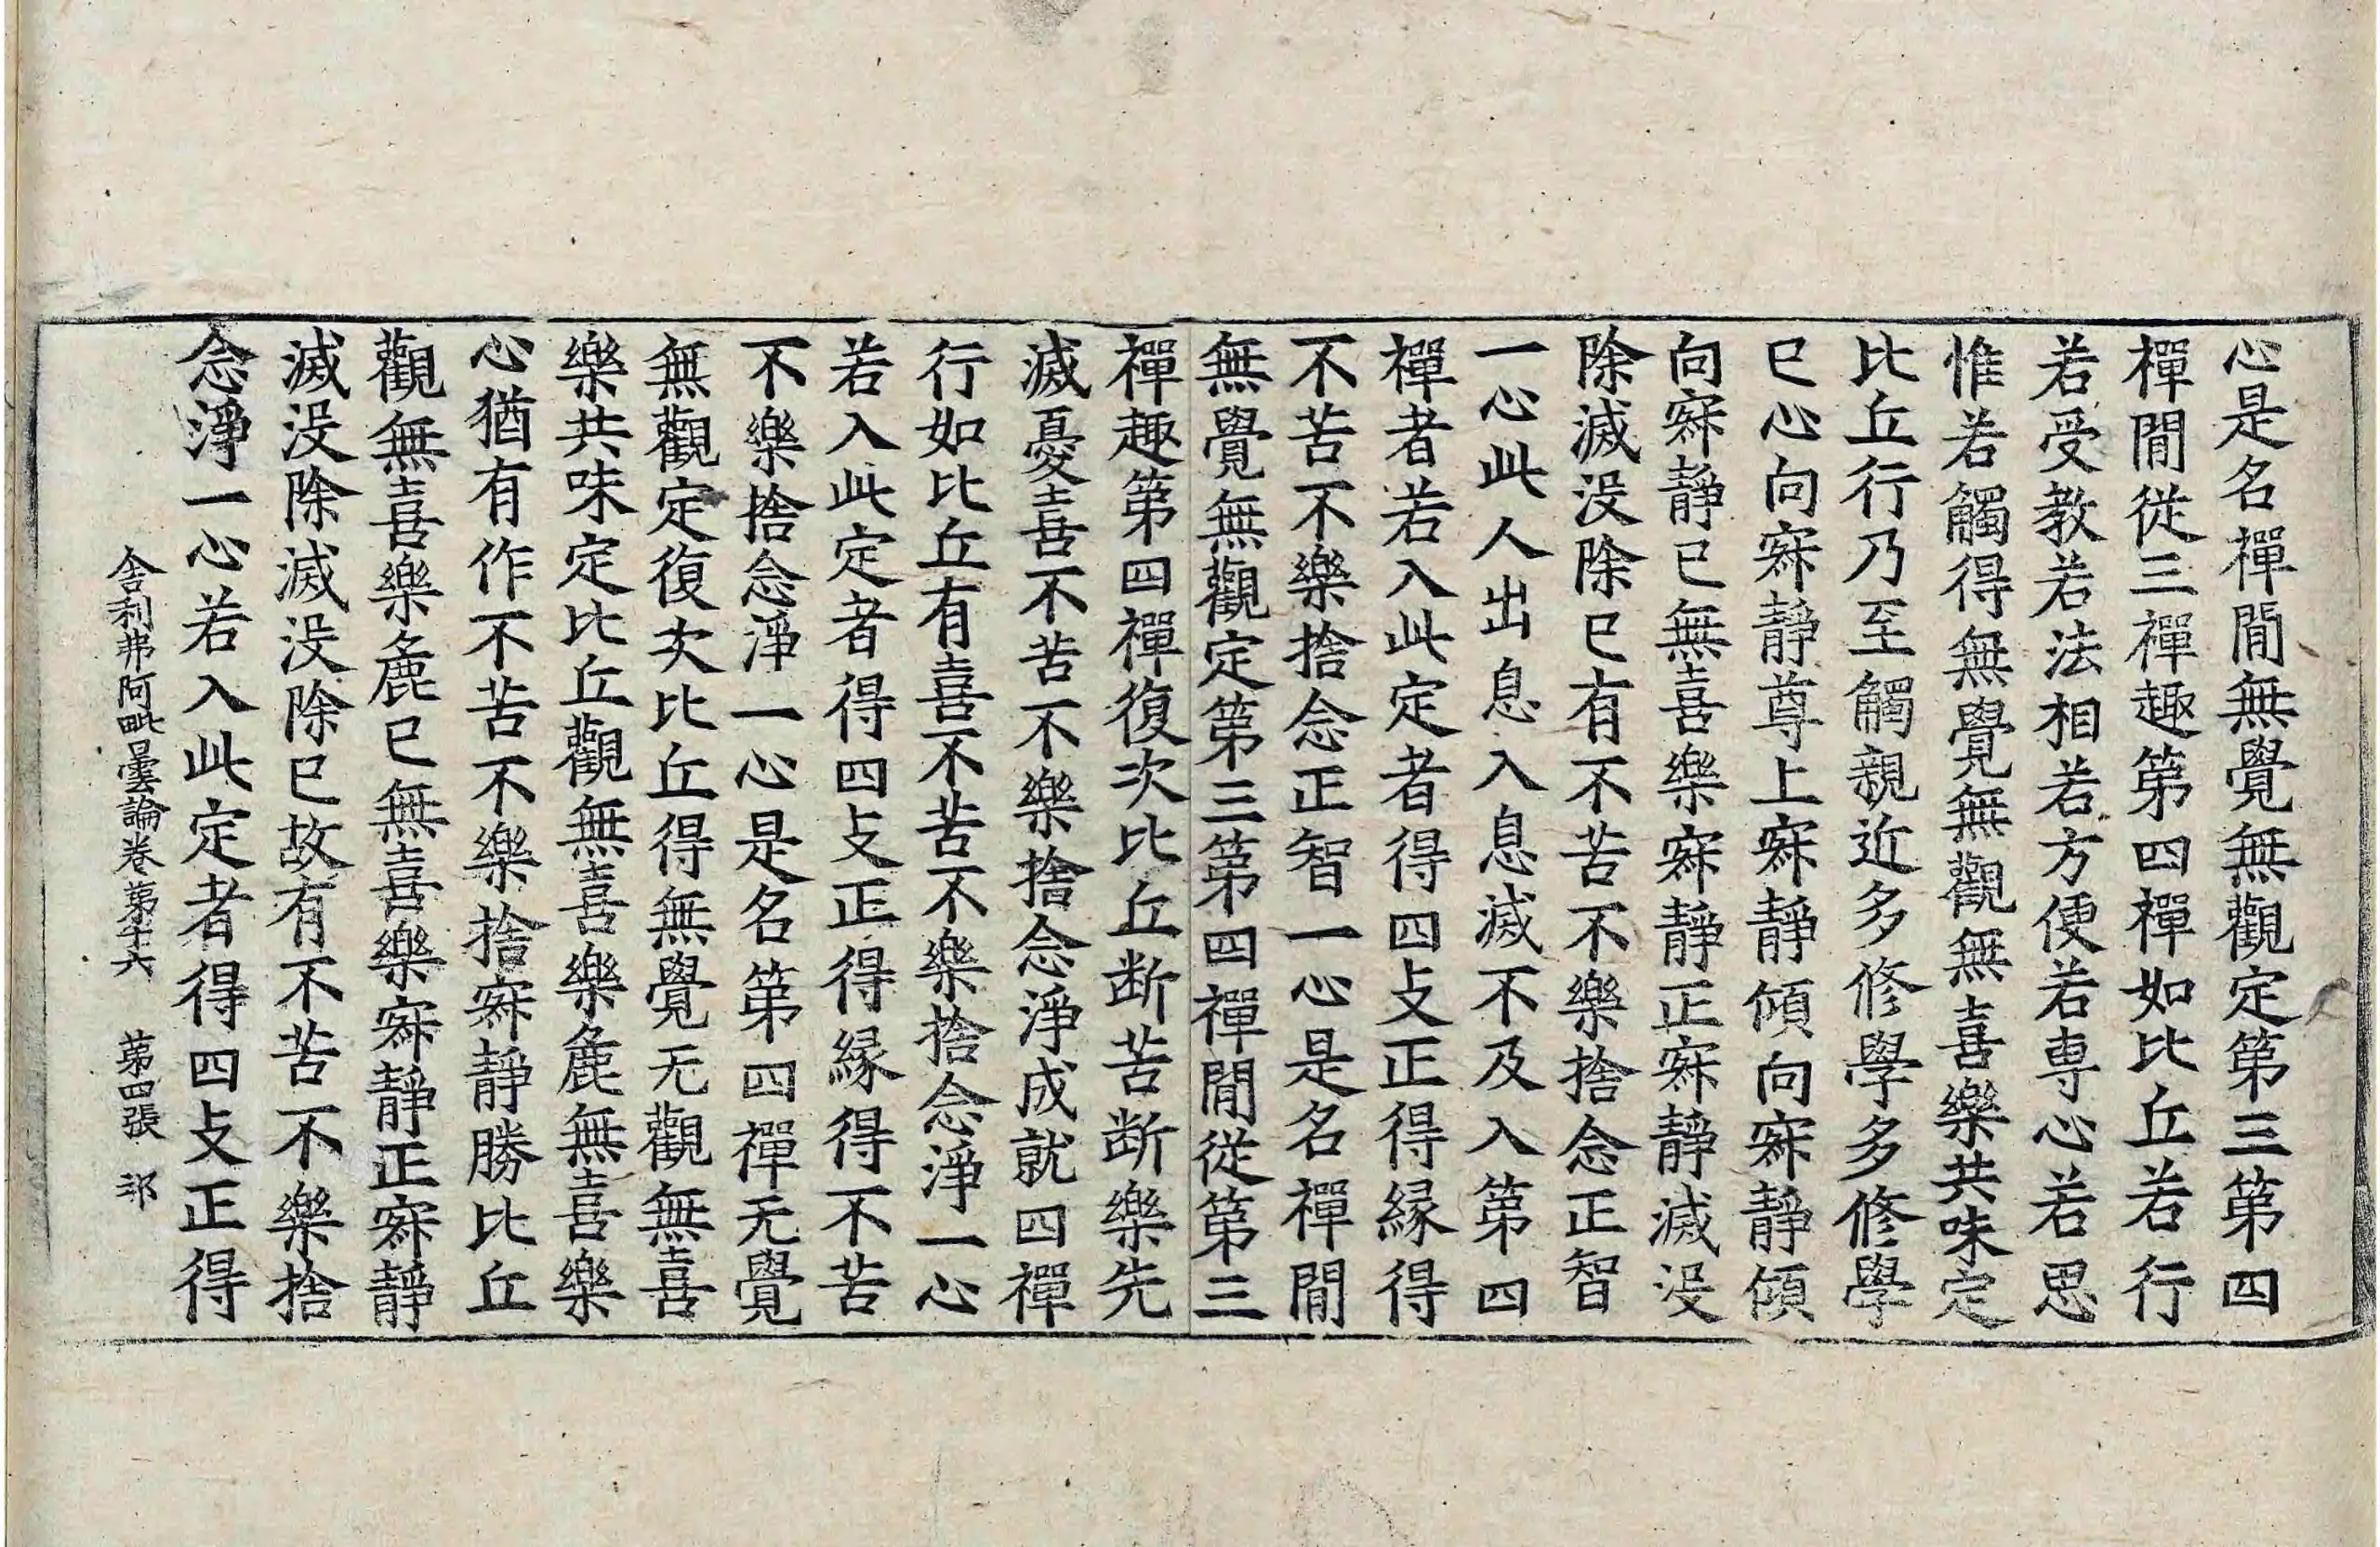 心是名禪閒無覺無觀定第三第四
禪閒從三禪趣第四禪如比丘若行
若受教若法相若方便若専心若思
惟若觸得無覺無觀無喜樂共味定
比丘行乃至觸親近多修學多修學
已心向寂靜尊上寂靜傾向寂靜傾
向寂靜已無喜樂寂靜正寂靜滅没
除滅没除已有不苦不樂捨念正智
一心此人出息入息滅不及入第四
禪者若入此定者得四支正得縁得
不苦不樂捨念正智一心是名禪閒
無覺無觀定第三第四禪閒從第三
禪趣第四禪復次比丘断苦断樂先
滅憂喜不苦不樂捨念淨成就四禪
行如比丘有喜不苦不樂捨念淨一心
若入此定者得四支正得縁得不苦
不樂捨念淨一心是名第四禪无覺
無觀定復次比丘得無覺无觀無喜
樂共味定比丘觀無喜樂麁無喜樂
心猶有作不苦不樂捨寂靜勝比丘
觀無喜樂麁已無喜樂寂靜正寂靜
滅没除滅没除已故有不苦不樂捨
念淨一心若入此定者得四支正得
舍利弗阿毗曇論卷第十六 第四張